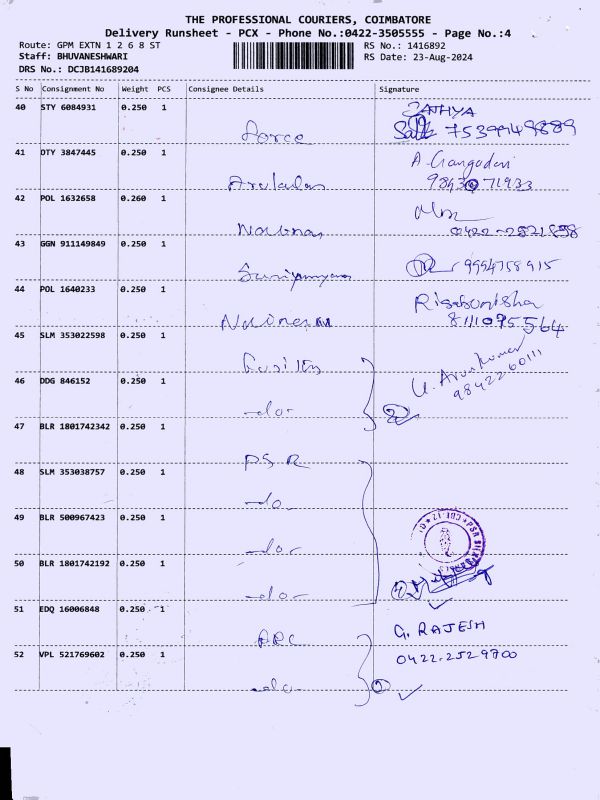 THE PROFESSIONAL COURIERS, COIMBATORE
Delivery Runsheet - PCX - Phone No.:0422-3505555 - Page No.:4
Route: GPM EXTN 1 2 6 8 ST
RS No.: 1416892
Staff: BHUVANESHWARI
RS Date: 23-Aug-2024
DRS No.: DCJB141689204
S No Consignment No Weight PCS Consignee Details Signature
40 STY 6084931 0.250 1
SATHYA
7539949889
Force
41 DTY 3847445 0.250 1
A. Gangadevi
9843071933
42 POL 1632658 0.260 1
43 GGN 911149849 0.250 1
9994758915
44 POL 1640233 0.250 1
8111075564
45 SLM 353022598 0.250 1
U. Arunkumar
9842260111
46 DDG 846152 0.250 1
-do-
2
47 BLR 1801742342 0.250 1
PSR
48 SLM 353038757 0.250 1
-do-
49 BLR 500967423 0.250 1
-do-
50 BLR 1801742192 0.250 1
-do-
51 EDQ 16006848 0.250 1
G. RAJESH
ARC
0422-2529700
52 VPL 521769602 0.250 1
-do-